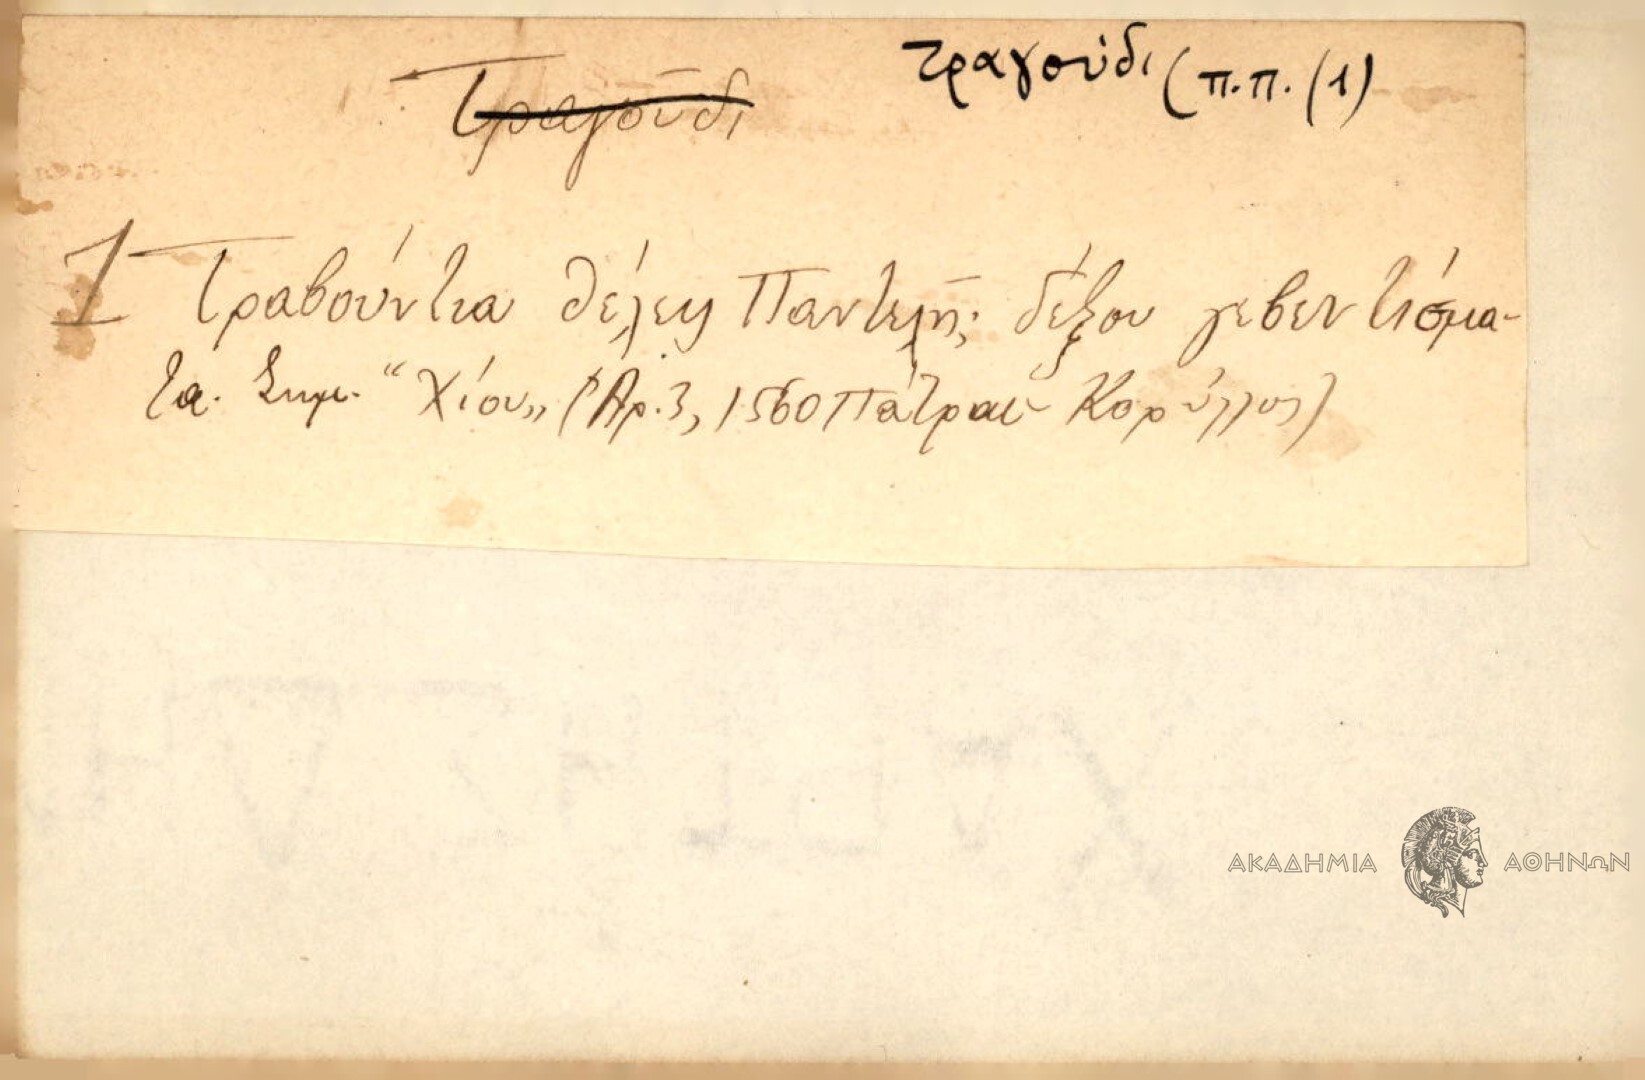 Τραγούδι
τραγούδι (π.π. (1)
1 Τραβούντια θέλεις Παντελῆ; δέξου γεβεντίσμα-
τα. Σημ. "Χίου" (Ἀρ. 3, 1560 Πάτραι Κορύλλος)
ΑΚΑΔΗΜΙΑ ΑΘΗΝΩΝ